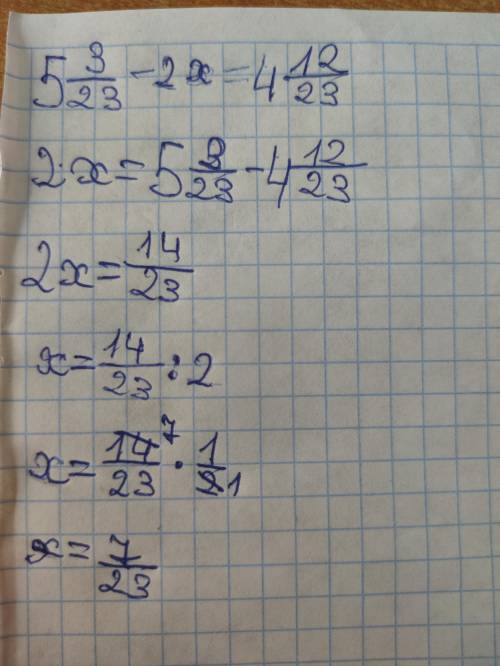 5 3/23 - 2x = 4 12/23
2·x = 5 3/23 - 4 12/23
2x = 14/23
x = 14/23 : 2
x = 14/23 7 · 1/2 1
x = 7/23